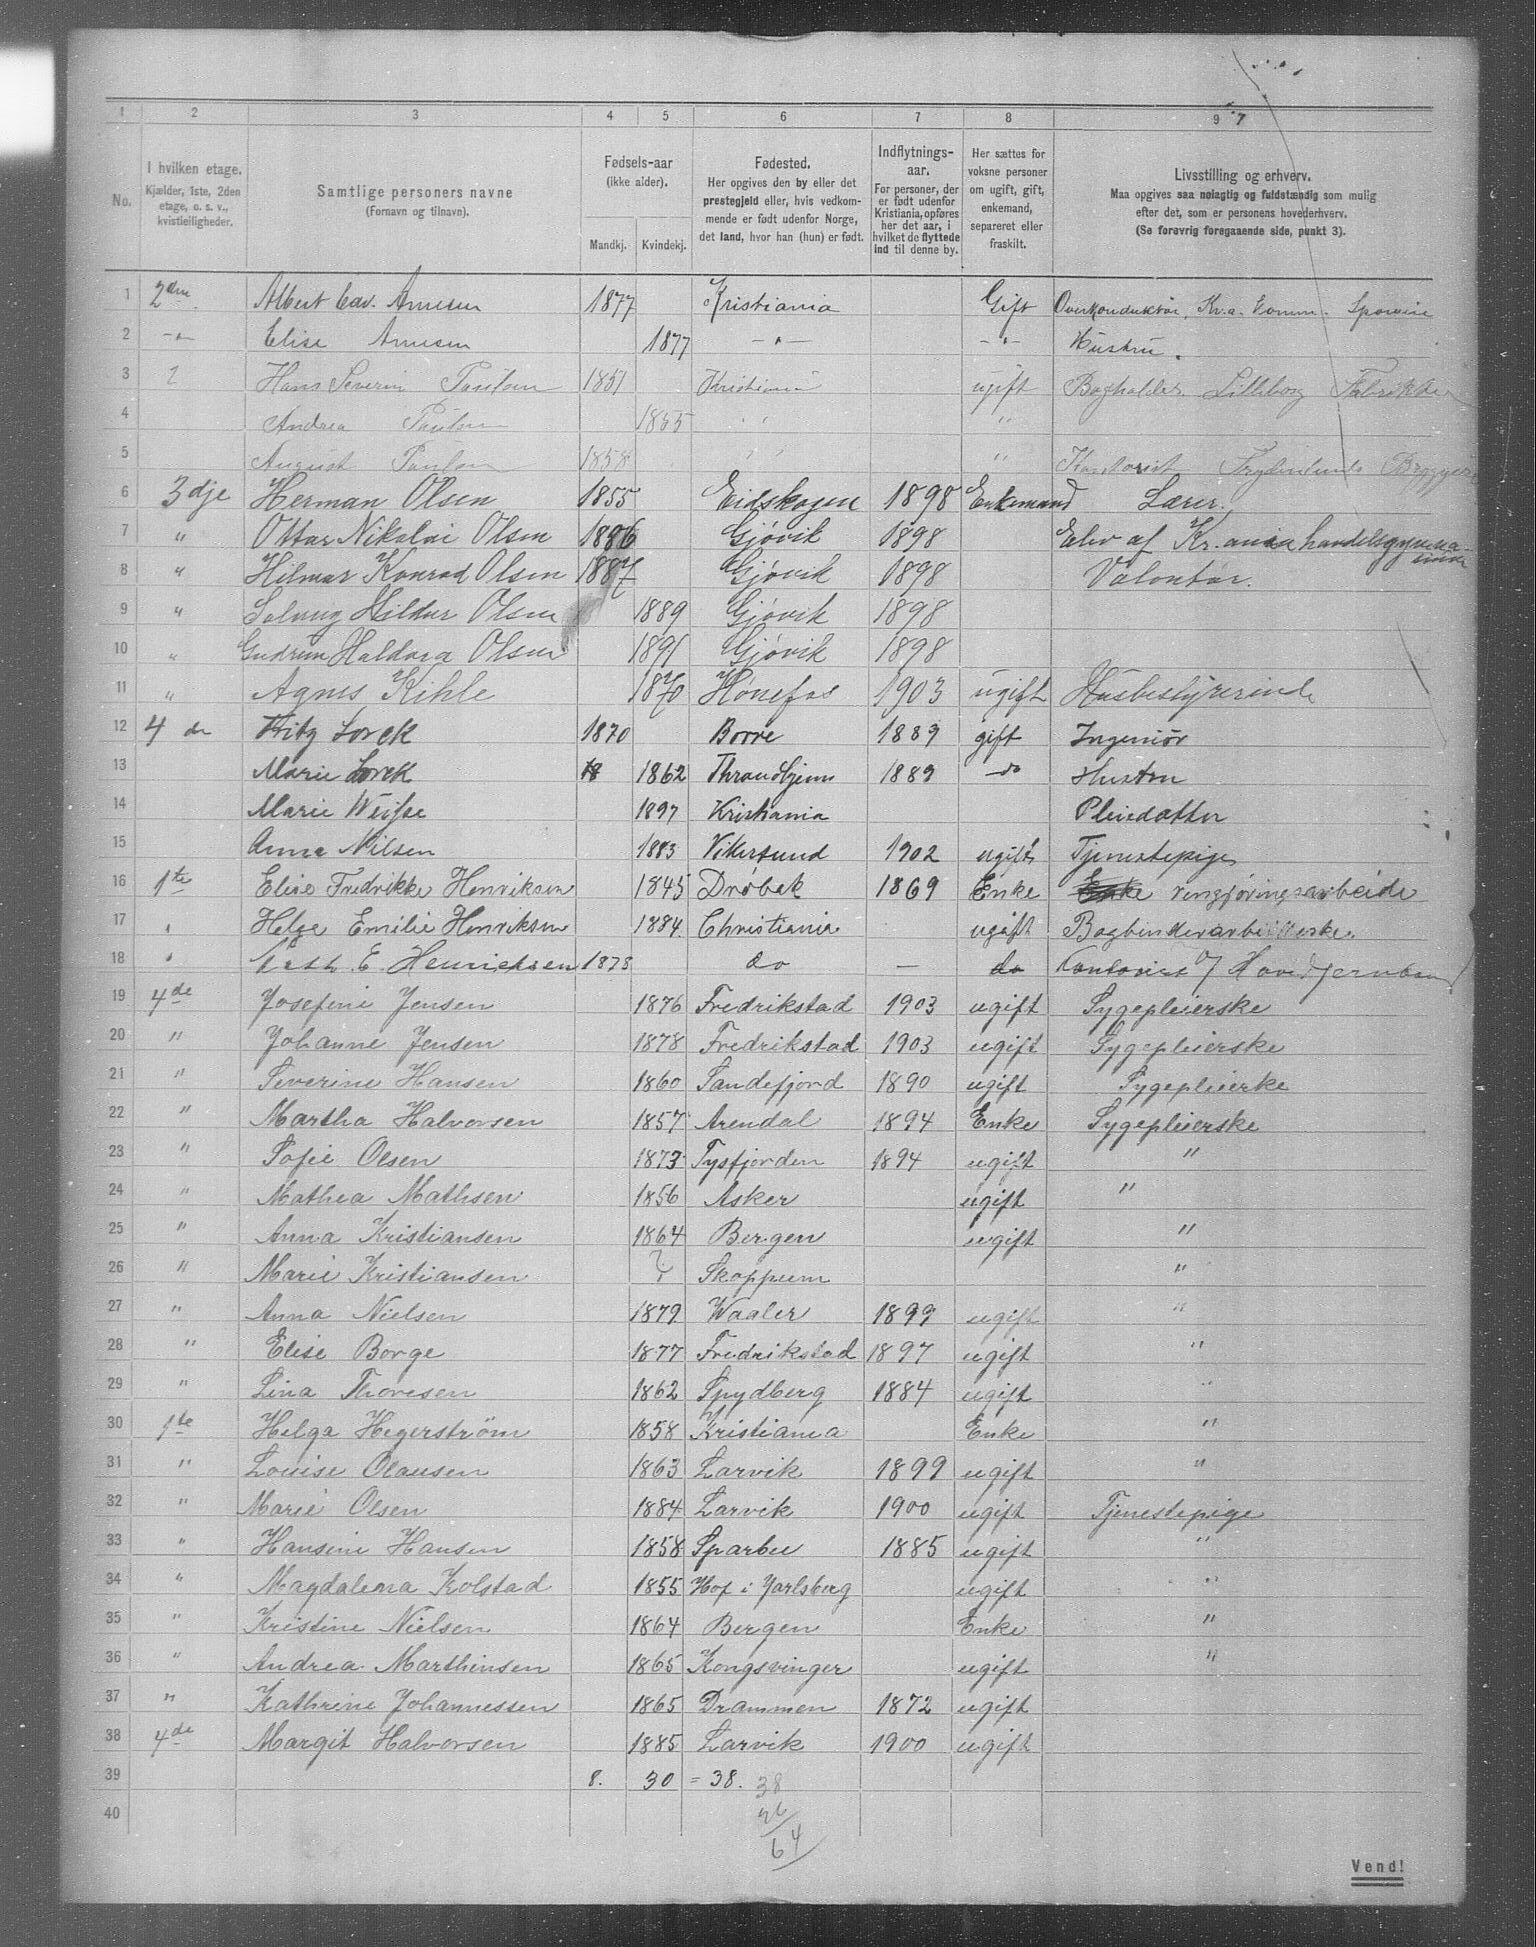 1 2 3 4 5 6 7 8 9 7
No.
I hvilken etage.
Kjælder, 1ste, 2den
etage, o. s. v.,
kvistleiligheder.
Samtlige personers navne
(Fornavn og tilnavn).
Fødsels-aar
(ikke alder).
Mandkj. Kvindekj.
Fødested.
Her opgives den by eller det
prestegjeld eller, hvis vedkom-
mende er født udenfor Norge,
det land, hvor han (hun) er født.
Indflytnings-
aar.
For personer, der
er født udenfor
Kristiania, opføres
her det aar, i
hvilket de flyttede
ind til denne by.
Her sættes for
voksne personer
om ugift, gift,
enkemand,
separeret eller
fraskilt.
Livsstilling og erhverv.
Maa opgives saa nøiagtig og fuldstændig som mulig
efter det, som er personens hovederhverv.
(Se forøvrig foregaaende side, punkt 3).
1 2den Albert Arnesen 1877 Kristiania Gift Overkonduktør, Kr.a. Komm. Sporveie
2 —"— Elise Arnesen 1877 —"— —"— Hustru.
3 2 Hans Severin Paulsen 1851 Kristiania ugift Bogholder Lilleborg Fabrikker
4 Andrea Paulsen 1855 " " "
5 August Paulsen 1858 " " " Kontorist Frydenlunds Bryggeri
6 3dje Herman Olsen 1855 Eidskogen 1898 Enkemand Lærer.
7 " Ottar Nikolai Olsen 1886 Gjøvik 1898 Elev af Kr.ania handelsgymna-
sium
8 " Hilmar Konrad Olsen 1887 Gjøvik 1898 Volontør.
9 " Solveig Hildur Olsen 1889 Gjøvik 1898
10 " Gudrun Haldora Olsen 1891 Gjøvik 1898
11 " Agnes Kihle 1870 Hønefos 1903 ugift Husbestyrerinde
12 4de Fritz Lorck 1870 Borre 1889 gift Ingeniør
13 Marie Lorck 18 1862 Throndhjem 1889 do Hustru
14 Marie Weisse 1897 Kristiania Pleiedatter
15 Anna Nilsen 1883 Vikersund 1902 ugift Tjenestepige
16 1te Elise Fredrikke Henriksen 1845 Drøbak 1869 Enke Enke rengjøringsarbeide
17 " Helga Emilie Henriksen 1884 Christiania ugift Bogbinderarbeiderske.
18 " E. Henricksen 1878 do — do Kontorist v/ Hovedjernban
19 4de Josefine Jensen 1876 Fredrikstad 1903 ugift Sygepleierske
20 " Johanne Jensen 1878 Fredrikstad 1903 ugift Sygepleierske
21 " Severine Hansen 1860 Sandefjord 1890 ugift Sygepleierke
22 " Martha Halvorsen 1857 Arendal 1894 Enke Sygepleierske
23 " Sofie Olsen 1873 Tysfjorden 1894 ugift "
24 " Mathea Mathsen 1856 Asker ugift "
25 " Anna Kristiansen 1864 Bergen ugift "
26 " Marie Kristiansen ? Skoppum "
27 " Anna Nielsen 1879 Waaler 1899 ugift "
28 " Elise Borge 1877 Fredrikstad 1897 ugift "
29 " Lina Thoresen 1862 Spydberg 1884 ugift "
30 1te Helga Hegerstrøm 1858 Kristiania Enke "
31 " Louise Olausen 1863 Larvik 1899 ugift "
32 " Marie Olsen 1884 Larvik 1900 ugift Tjenestepige
33 " Hansine Hansen 1858 Sparbu 1885 ugift "
34 " Magdalena Kolstad 1855 Hof i Jarlsberg ugift "
35 " Kristine Nielsen 1864 Bergen Enke "
36 " Andrea Marthinsen 1865 Kongsvinger ugift "
37 " Kathrine Johannessen 1865 Drammen 1872 ugift
38 4de Margit Halvorsen 1885 Larvik 1900 ugift
39 8. 30 = 38. 38
40 26
64
Vend!